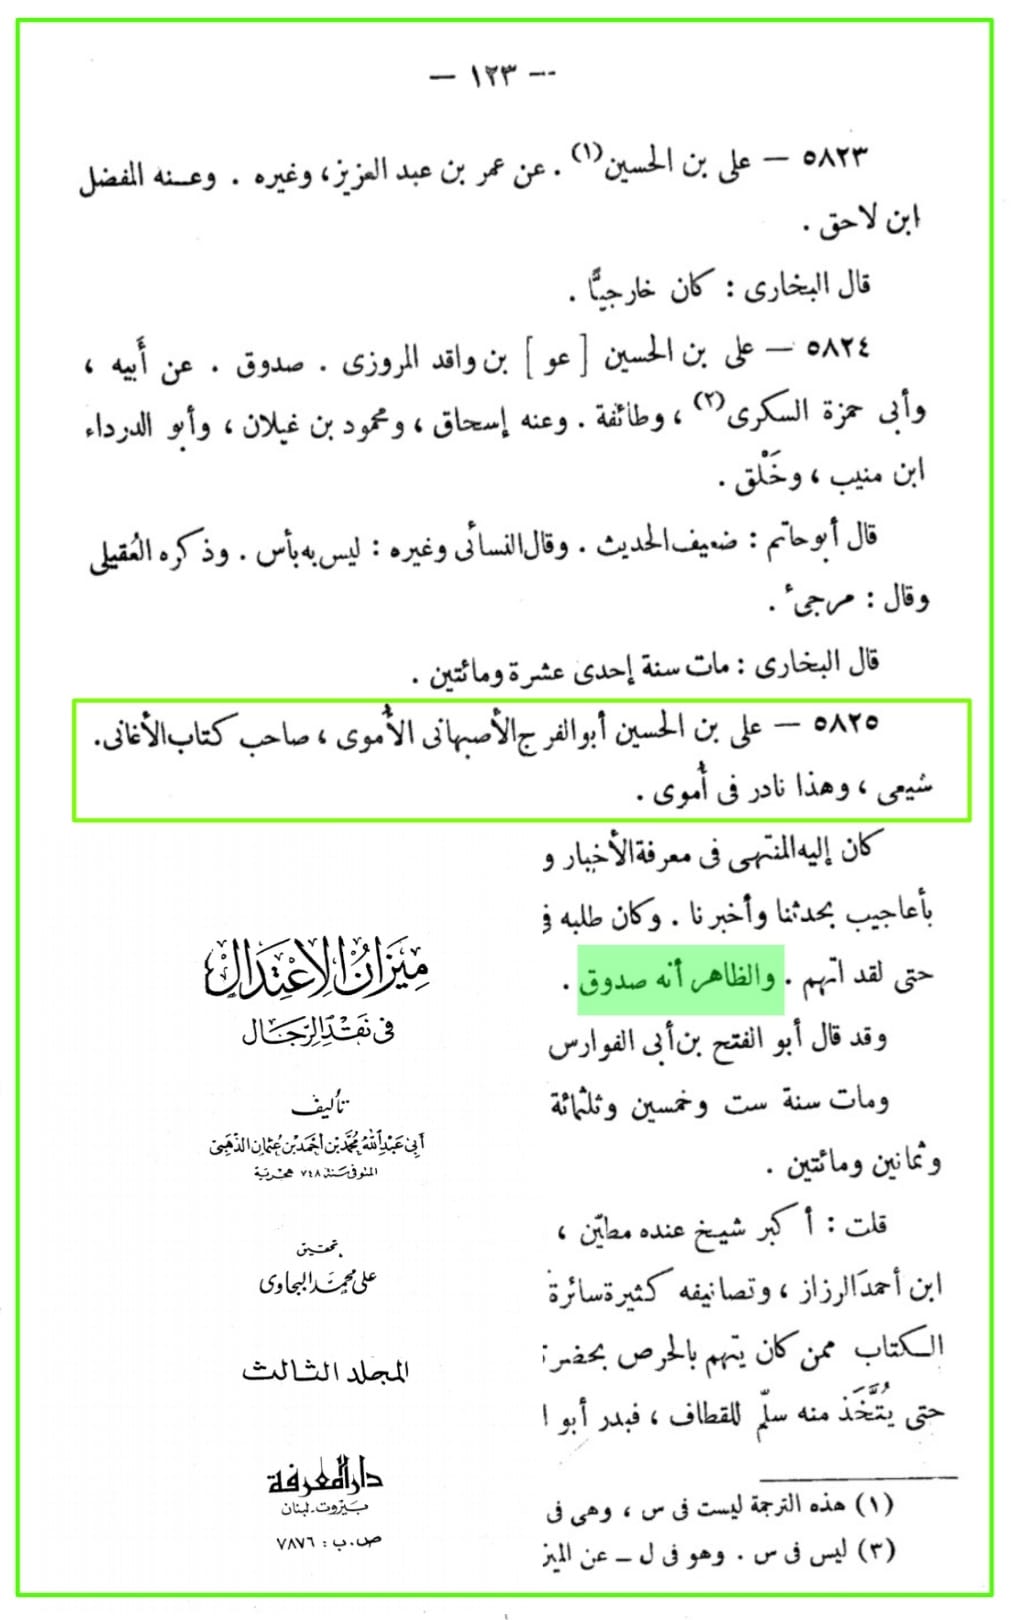 — ١٢٣ —
٥٨٢٣ — على بن الحسين(١) . عن عمر بن عبد العزيز، وغيره . وعنه المفضل
ابن لاحق .
قال البخارى : كان خارجيًّا .
٥٨٢٤ — على بن الحسين [ عو ] بن واقد المروزى . صدوق . عن أَبيه ،
وأبى حمزة السكرى(٢) ، وطائفة . وعنه إسحاق ، ومحمود بن غيلان ، وأبو الدرداء
ابن منيب ، وخَلْق .
قال أبو حاتم : ضعيف الحديث . وقال النسائى وغيره : ليس به بأس . وذكره العُقيلى
وقال : مرجىء .
قال البخارى : مات سنة إحدى عشرة ومائتين .
٥٨٢٥ — على بن الحسين أبو الفرج الأصبهانى الأُموى ، صاحب كتاب الأغانى.
شيعى ، وهذا نادر فى أُموى .
كان إليه المنتهى فى معرفة الأخبار و
بأعاجيب بحدثنا وأخبرنا . وكان طلبه فى
حتى لقد اتهم . والظاهر أنه صدوق .
وقد قال أبو الفتح بن أبى الفوارس
ومات سنة ست وخمسين وثلثمائة
وثمانين ومائتين .
قلت : أكبر شيخ عنده مطيّن ،
ابن أحمد الرزاز ، وتصانيفه كثيرة سائرة
الكتاب ممن كان يتهم بالحرص بحضر
حتى يُتَّخَذ منه سلّم للقطاف ، فبدر أبو ا
(١) هذه الترجمة ليست فى س ، وهى فى
(٣) ليس فى س . وهو فى ل — عن الميز
ميزان الاعتدال
فى نقد الرجال
تأليف
أبى عبد الله محمد بن أحمد بن عثمان الذهبى
المتوفى سنة ٧٤٨ هجرية
تحقيق
على محمد البجاوى
المجلد الثالث
دار المعرفة
بيروت ـ لبنان
ص.ب : ٧٨٧٦